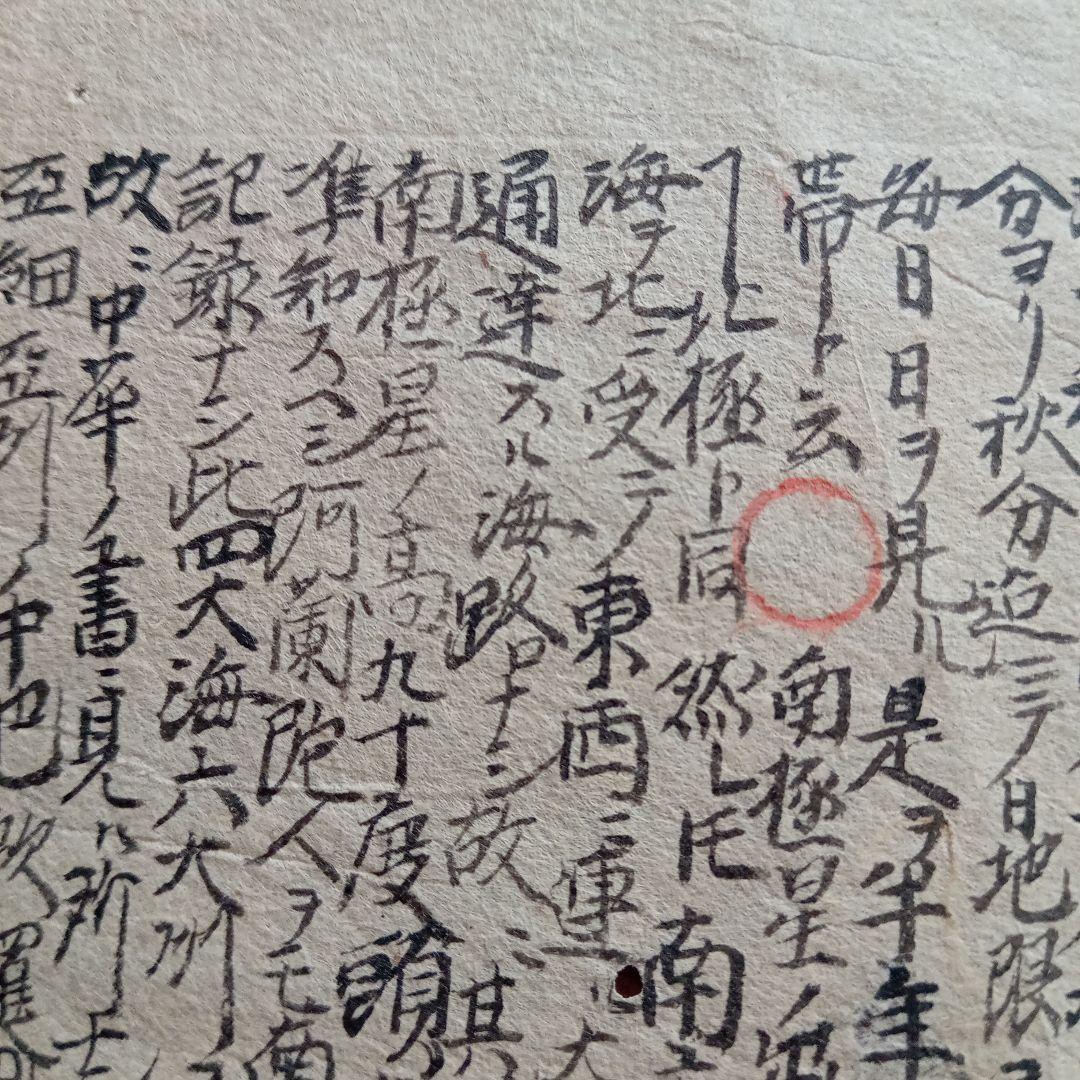 分ヨリ秋分迄ミテノ日地限
毎日日ヲ見ル是ヲ半年
帯ト云南極星ノ
ヿ北極ト同然レ𪜈南
海ヲ北ニ受テ東西ニ運ル大
通達スル海路ナシ故ニ其
南極星ノ高九十度頭
準知スヘシ阿蘭陀人ヲモ
記録ナシ此四大海六大洲
故ニ中華ノ書ニ見ル所
亞細亞洲ノ中也欧羅